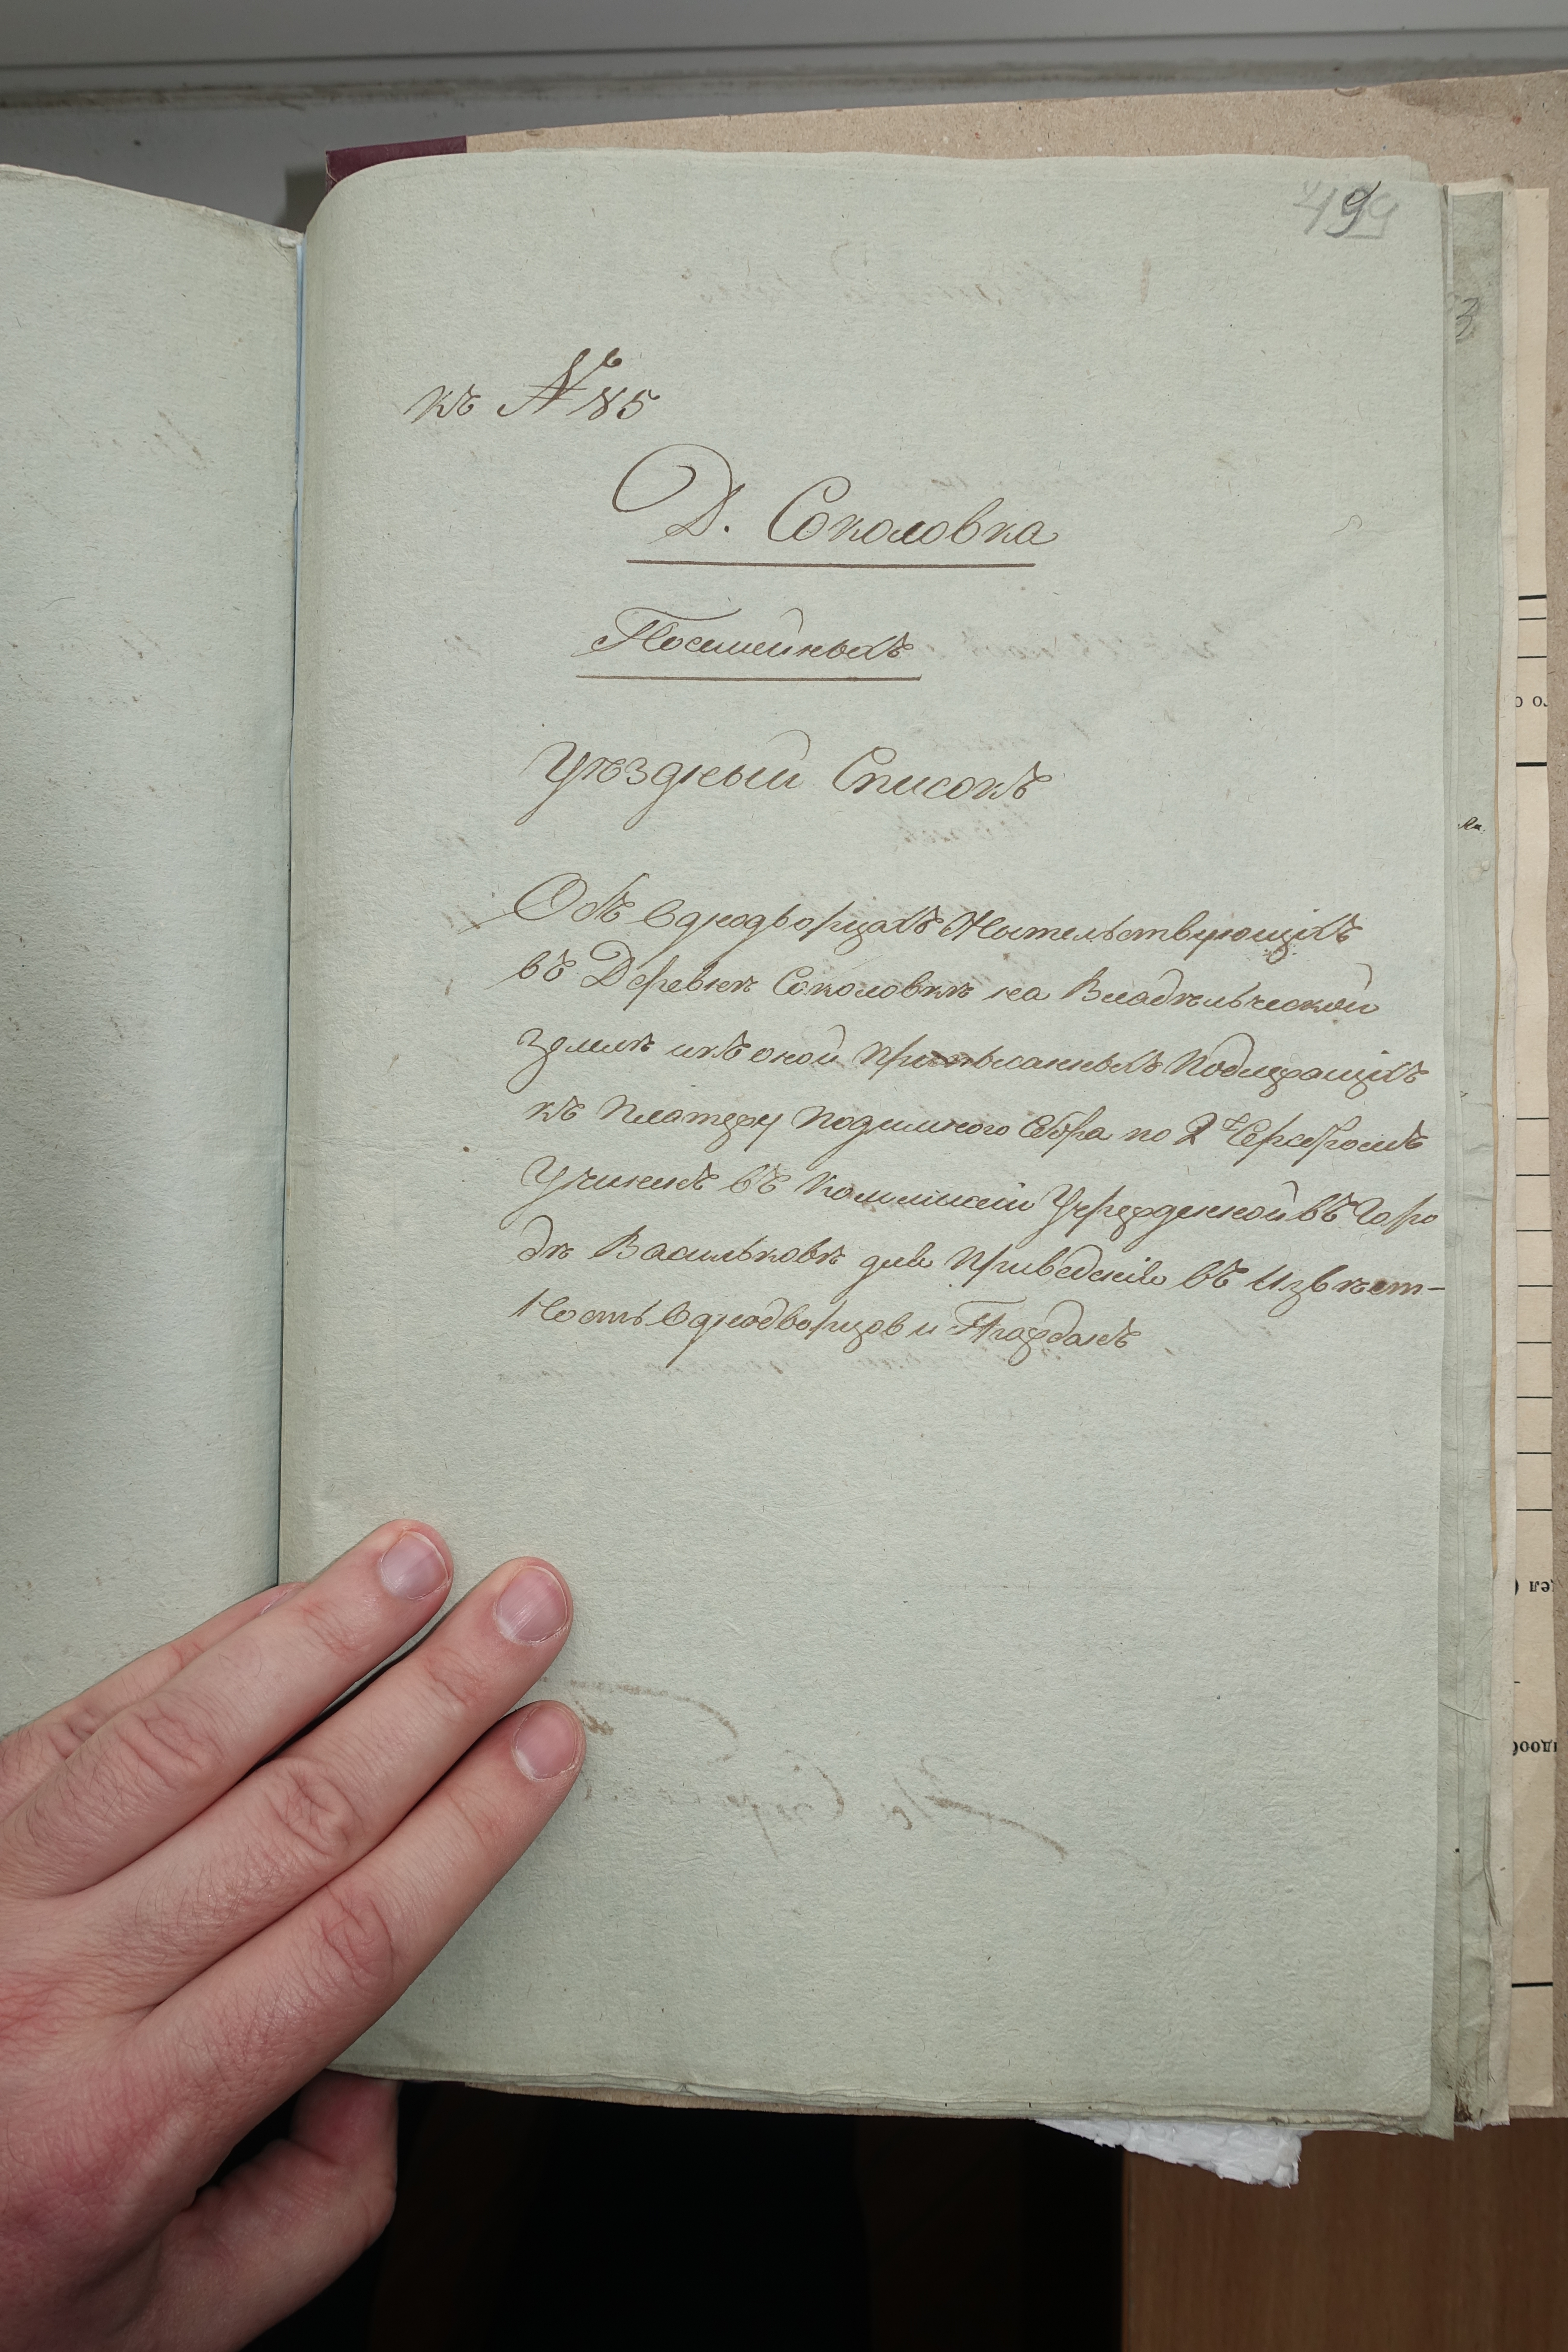 499
къ № 85
Д. Соколовка
Посемейныхъ
Уѣздный Списокъ
Объ Однодворцахъ Жительствующихъ
въ Деревнѣ Соколовкѣ на Владѣльческой
Землѣ икъ оной приписанныхъ Подлежащихъ
къ Платежу Подымного Сбора по 2 Серебромъ
Учиненъ въ Коммиссіи Учрежденной въ Горо
дѣ Васильковѣ для Приведенія въ Извѣст-
Ность Однодворцов и Граждань